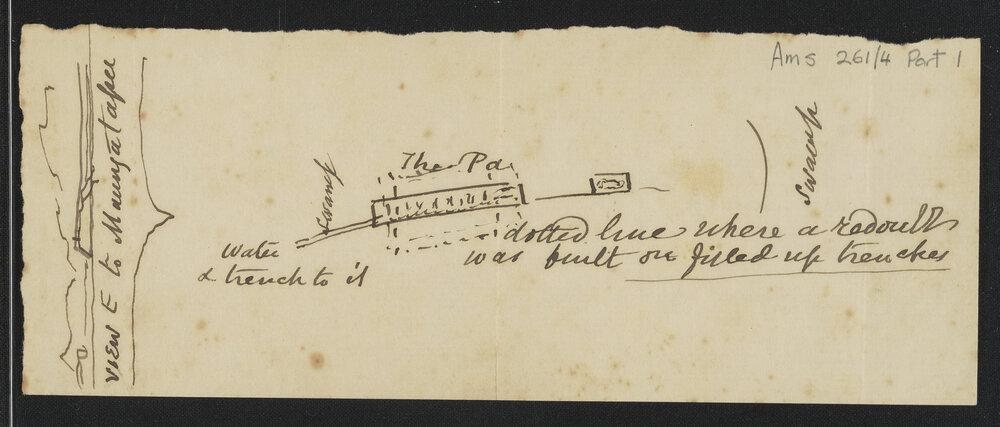 Ams 261/4 Part 1
view E to Maungatapu
The Pa
Swamp
Swamp
Water
& trench to it
dotted line where a redoubt
was built on filled up trenches